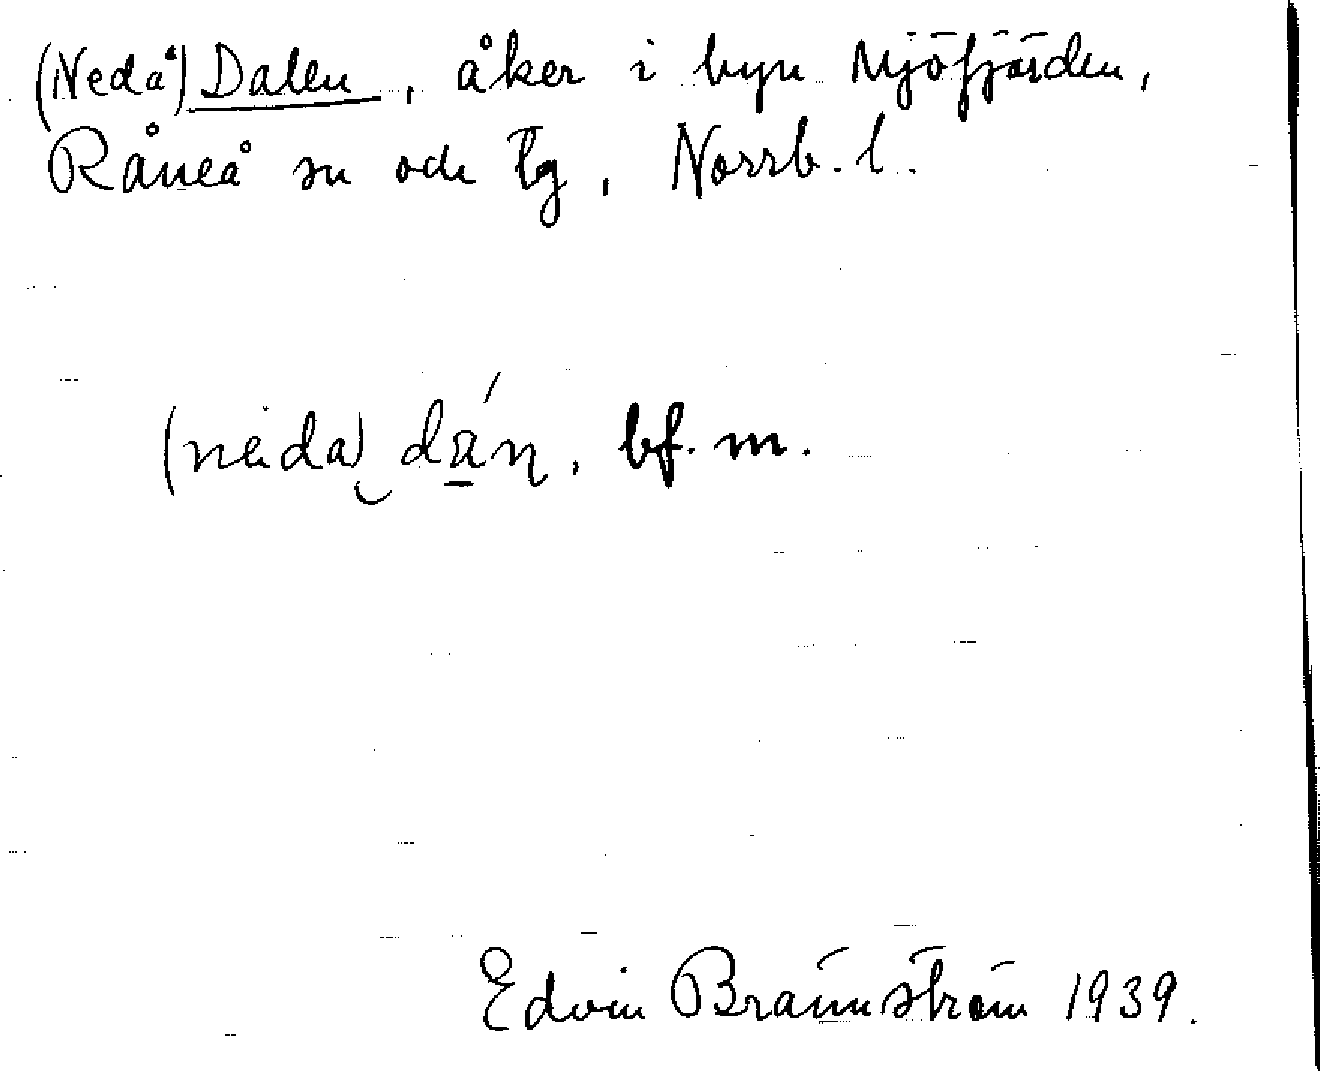 (Nedå) Dalen, åker i byn Mjöfjärden,
Råneå sn och tg, Norrb. l.
(neda) dán, bf. m.
Edvin Brännström 1939.